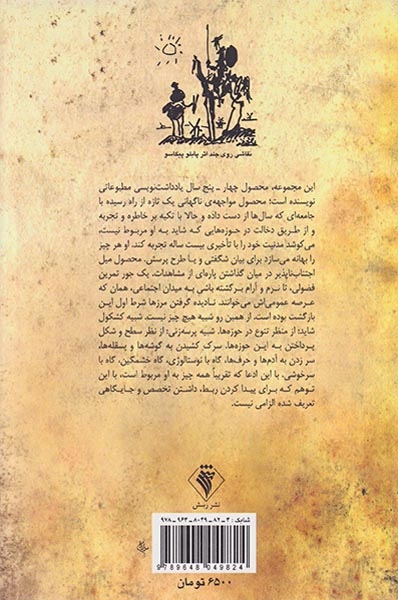 نقاشی روی جلد اثر پابلو پیکاسو
این مجموعه، محصول چهار ـ پنج سال یادداشت‌نویسی مطبوعاتی
نویسنده است؛ محصول مواجهه‌ی ناگهانی یک تازه از راه رسیده با
جامعه‌ای که سال‌ها از دست داده و حالا با تکیه بر خاطره و تجربه
و از طریق دخالت در حوزه‌هایی که شاید به او مربوط نیست،
می‌کوشد مدنیت خود را با تأخیری بیست ساله تجربه کند. او هر چیز
را بهانه می‌سازد برای بیان شگفتی و یا طرح پرسش. محصول میل
اجتناب‌ناپذیر در میان گذاشتن پاره‌ای از مشاهدات. یک جور تمرین
فضولی، تا نرم و آرام برگشته باشی به میدان اجتماعی، همان که
عرصه عمومی‌اش می‌خوانند. نادیده گرفتن مرزها شرط اول این
بازگشت بوده است. از همین رو شبیه هیچ چیز نیست. شبیه کشکول
شاید؛ از منظر تنوع در حوزه‌ها. شبیه پرسه‌زنی؛ از نظر سطح و شکل
پرداختن به این حوزه‌ها. سرک کشیدن به گوشه‌ها و پسقله‌ها،
سر زدن به آدم‌ها و حرف‌ها، گاه با نوستالوژی، گاه خشمگین، گاه با
سرخوشی. با این ادعا که تقریباً همه چیز به او مربوط است، با این
توهم که برای پیدا کردن ربط، داشتن تخصص و جایگاهی
تعریف شده الزامی نیست.
نشر ربش
شابک : ۳ ـ ۸۲ ـ ۸۰۴۹ ـ ۹۶۴ ـ ۹۷۸
9789648049824
۶۵۰۰ تومان